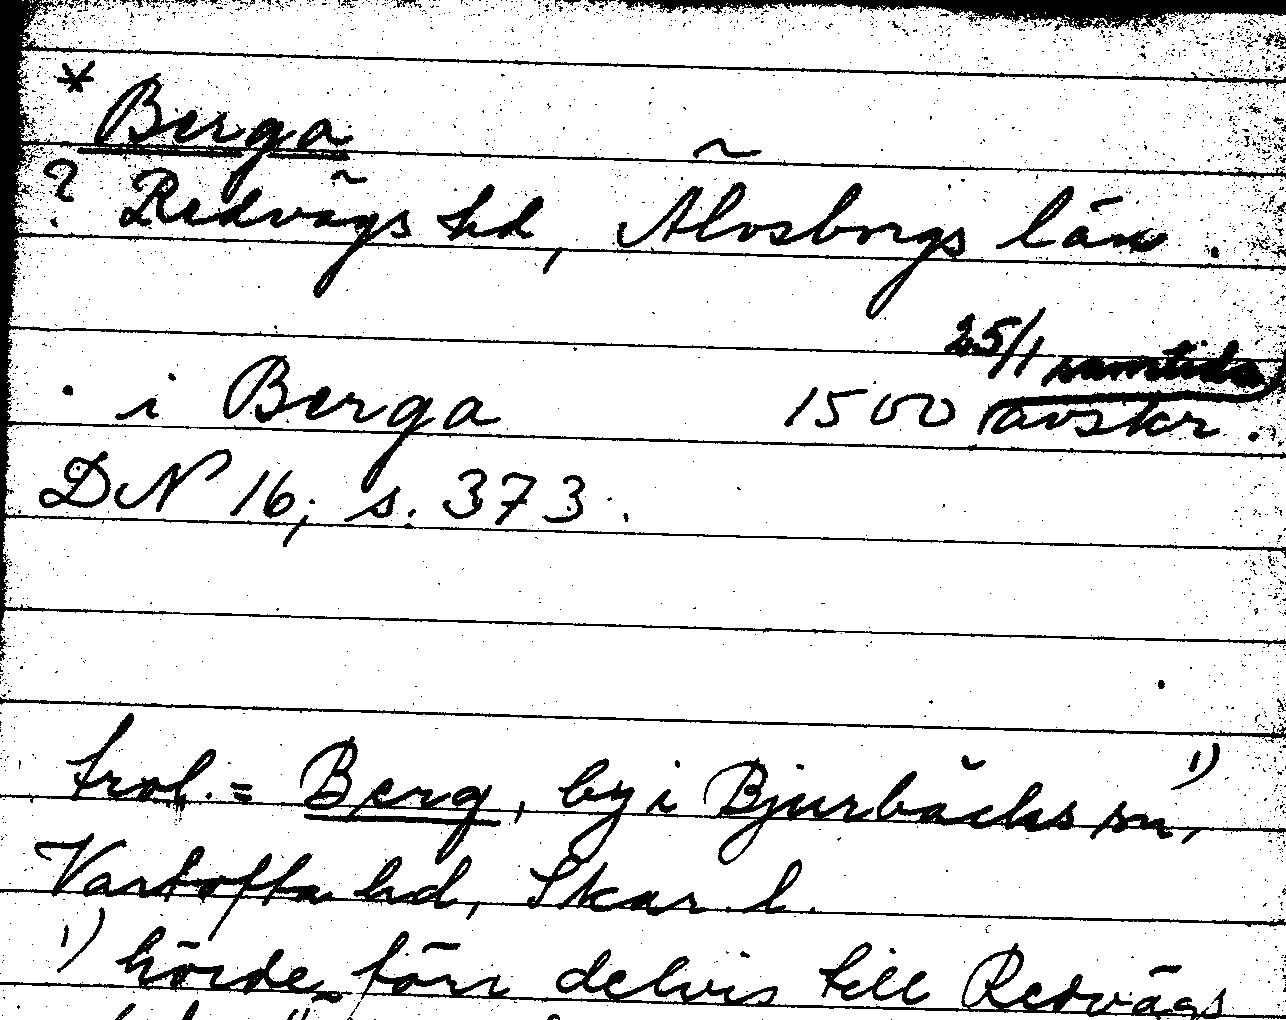 * Berga
? Redvägs hd, Älvsborgs län.
25/1 samtida
. i Berga 1500 avskr.
DN 16, s. 373.
trol. = Berg, by i Bjurbäcks sn, 1)
Vartofta hd, Skar. l.
1) hörde förr delvis till Redvägs